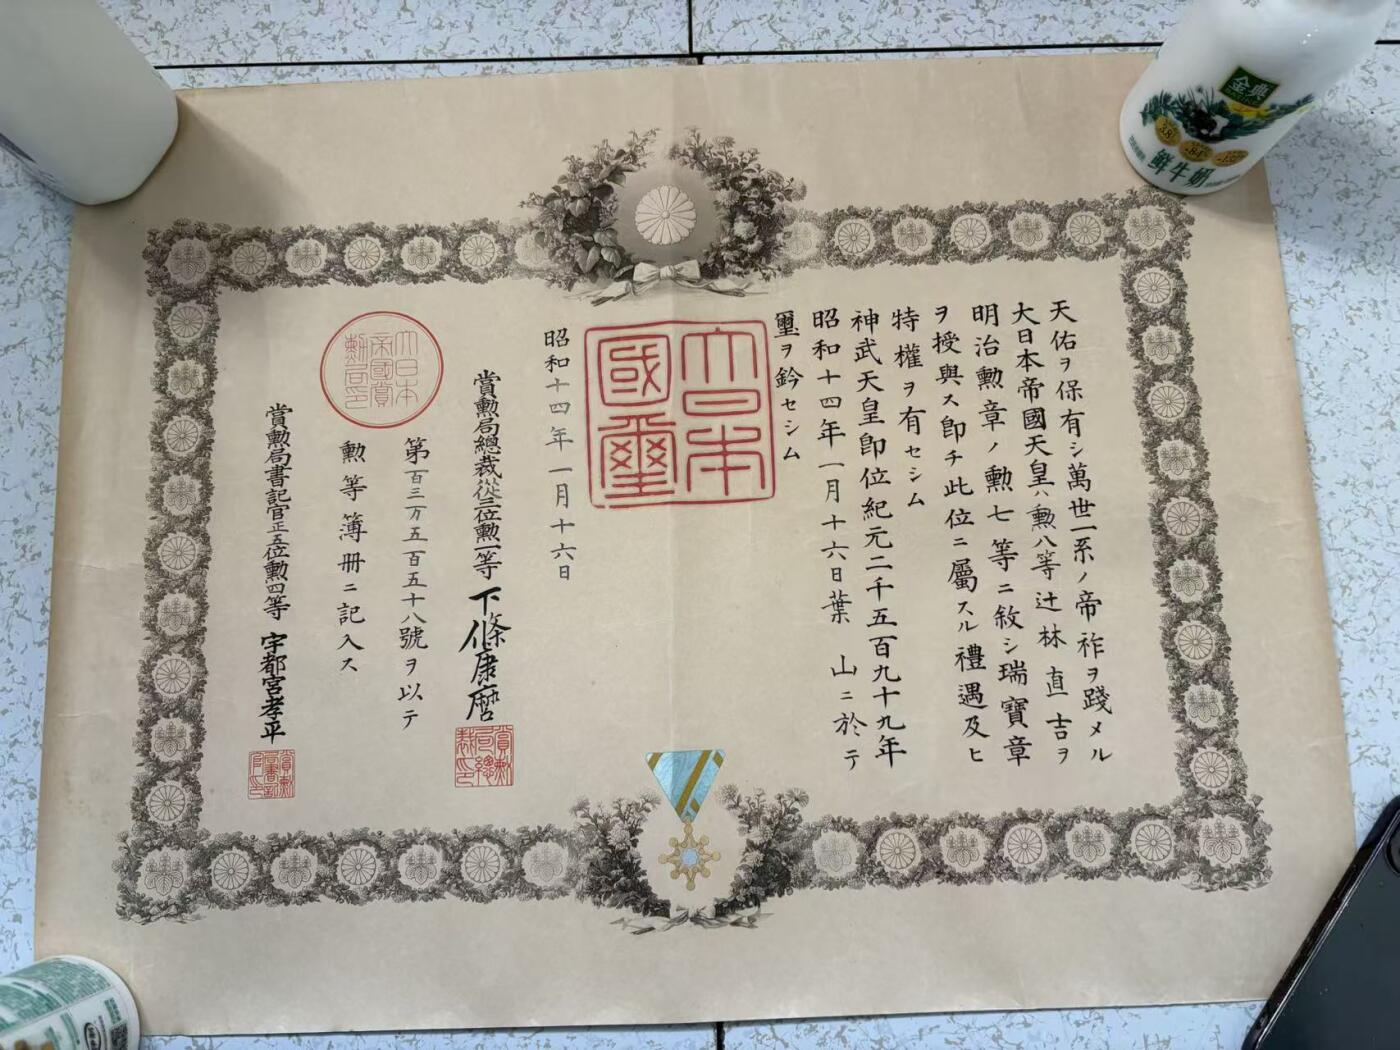 天佑ヲ保有シ萬世一系ノ帝祚ヲ踐メル
大日本帝國天皇ハ勲八等辻林直吉ヲ
明治勲章ノ勲七等ニ敘シ瑞寶章
ヲ授與ス即チ此位ニ屬スル禮遇及ヒ
特權ヲ有セシム
神武天皇即位紀元二千五百九十九年
昭和十四年一月十六日葉山ニ於テ
璽ヲ鈐セシム
大日本國璽
昭和十四年一月十六日
賞勲局總裁從三位勲一等下條康麿
賞勲局總裁印
第百三万五百五十八號ヲ以テ
勲等簿冊ニ記入ス
大日本帝國賞勲局印
賞勲局書記官正五位勲四等宇都宮孝平
金典
鮮牛奶